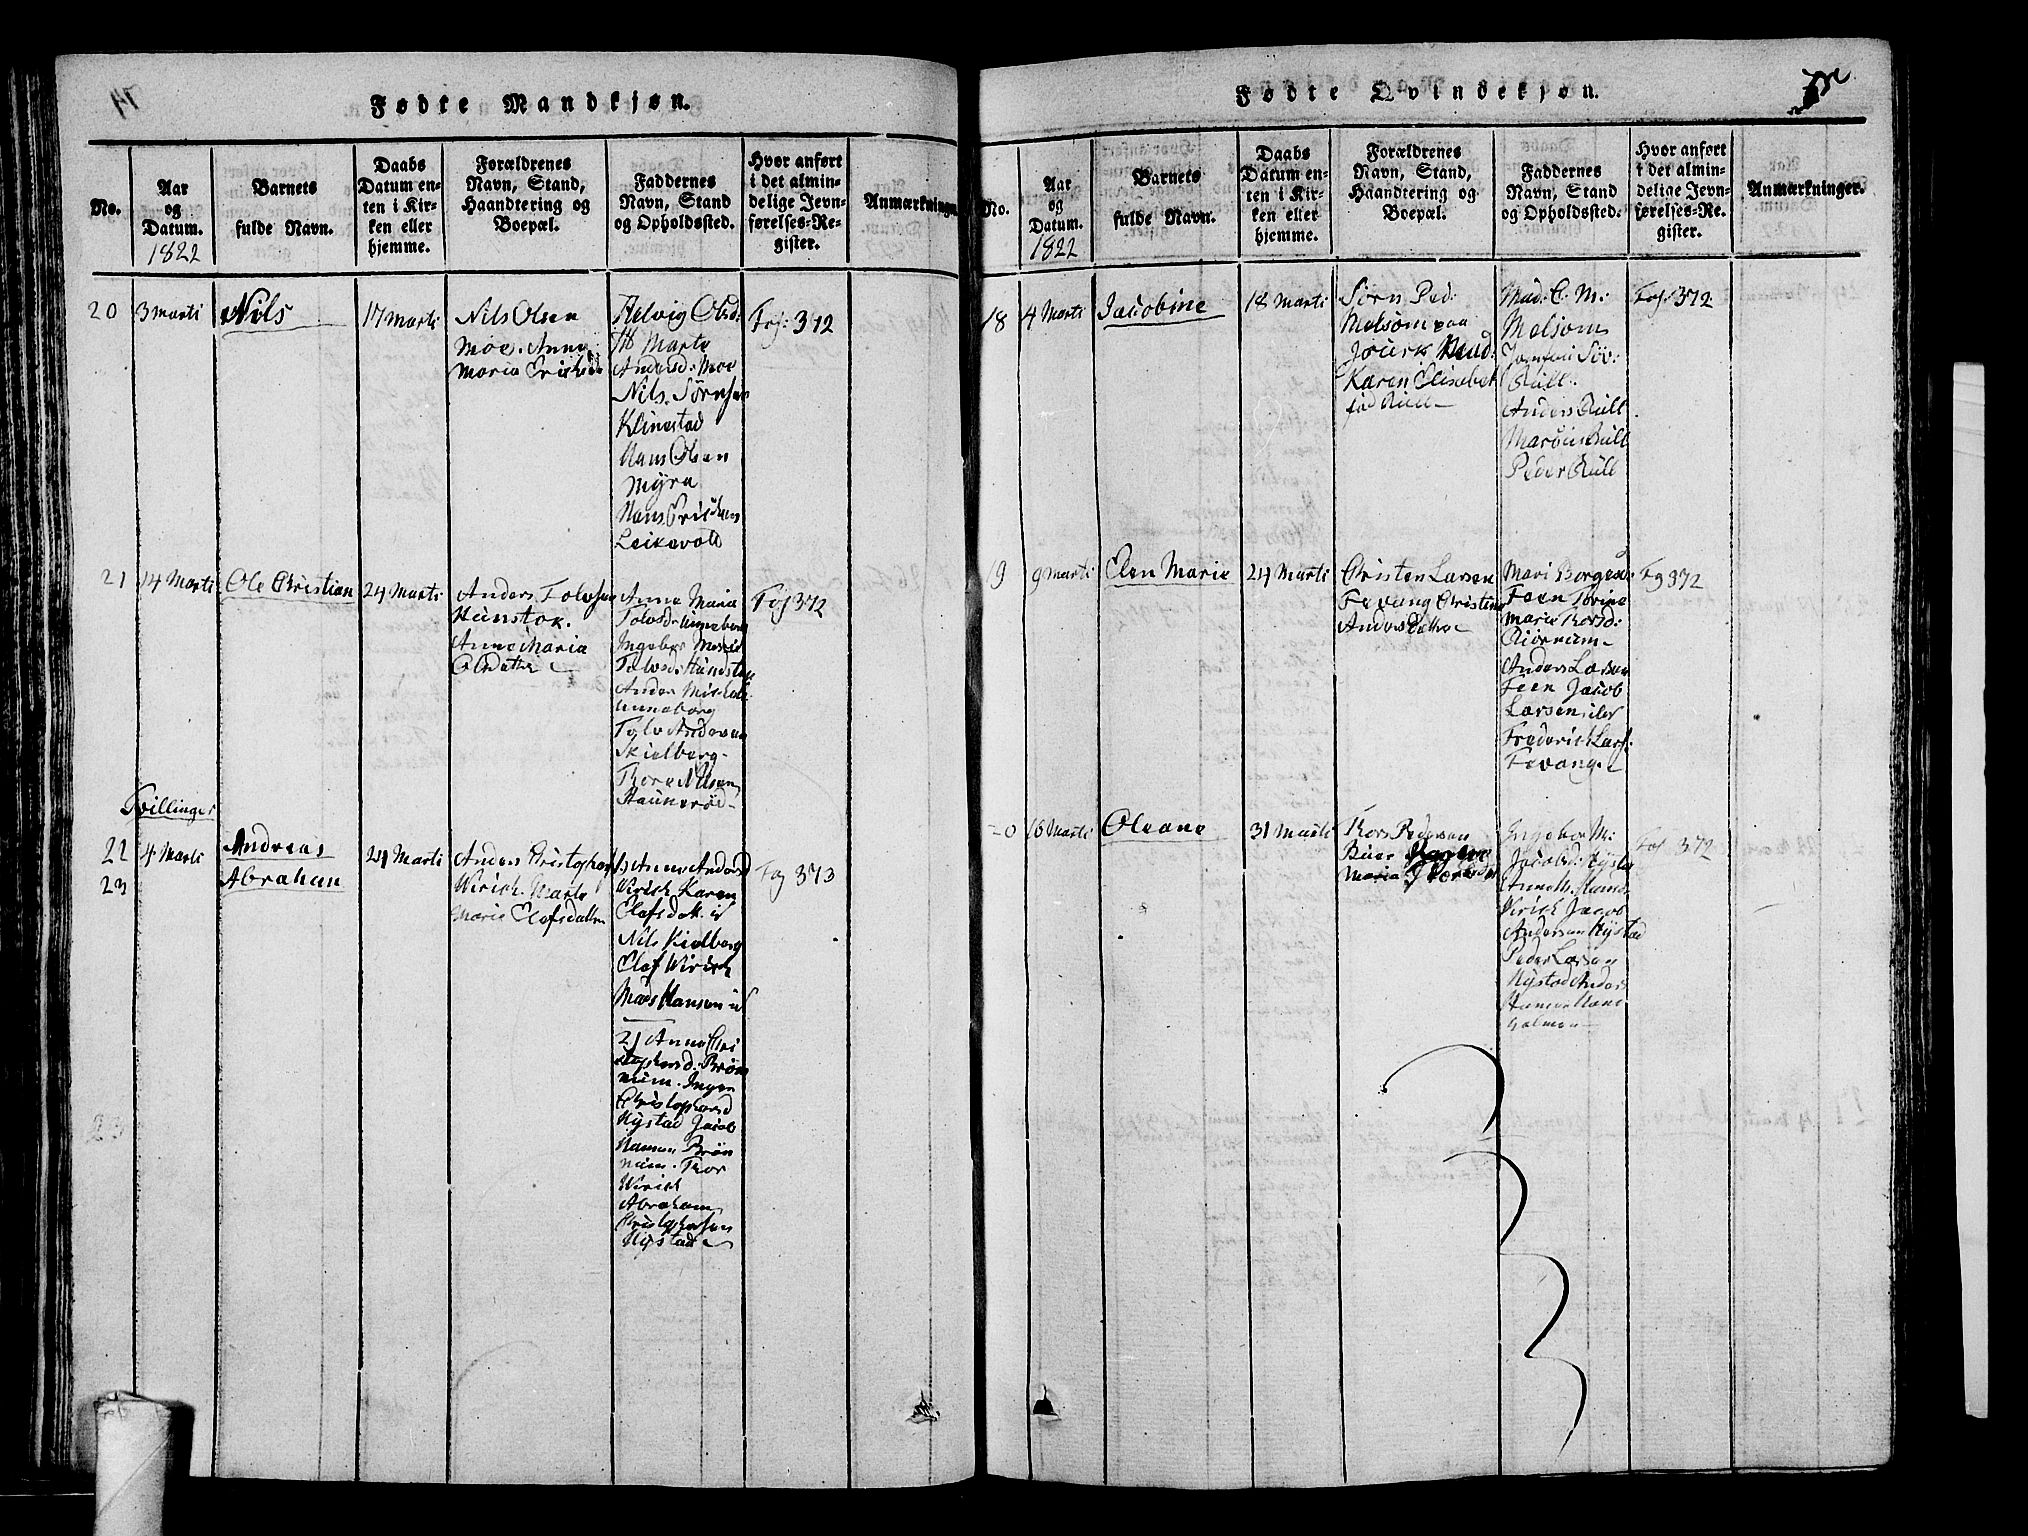 Fødte Mandkjøn.
No.
Aar
og
Datum.
1822
Barnets
fulde Navn.
Daabs
Datum en-
ten i Kir-
ken eller
hjemme.
Forældrenes
Navn, Stand,
Haandtering og
Boepæl.
Faddernes
Navn, Stand
og Opholdssted.
Hvor anført
i det almin-
delige Jevn-
førelses-Re-
gister.
Anmærkninger
20
3 Marti
Nils
17 Marti
Nils Olsen
Moe. Anne
Maria
Helvig Olsd:
Marte
Andersd: Moe
Nils Sørnsen
Klinestad
Hans Olsen
Myra
Hans
Leikevold
Fol: 372
21
14 Marti
Ole Christian
24 Marti
Anders Tolvsen
Hunstok.
Anne Maria
Olsdatter
Anne Maria
Tolvsd:
Ingebor Marie
Tolvsd:
Anders
Tolv Andersen
Skielberg
Thore Nilsen
Haunerød
Fol 372
Tvillinger
22
23
4 Marti
Andreas
Abraham
24 Marti
Anders Cristophers
Wirich. Marte
Maria Elofsdatter
1) Anne Andersd
Wirich Karen
Elofsdat. id
Nils Kielberg
Elof Wirich
Mads Hansen id
2) Anne Chri
stophersd: Brøn
num. Inger
Christophersd
Nystad Jacob
Hansen Brøn
num. Thor
Wirich
Abraham
Cristophersen
Nystad
Fol 373
23
Fødte Qvindekjøn.
75
No.
Aar
og
Datum.
1822
Barnets
fulde Navn.
Daabs
Datum en-
ten i Kir-
ken eller
hjemme.
Forældrenes
Navn, Stand,
Haandtering og
Boepæl.
Faddernes
Navn, Stand
og Opholdssted.
Hvor anført
i det almin-
delige Jevn-
førelses-Re-
gister.
Anmærkninger.
18
4 Marti
Jacobine
18 Marti
Sørn Ped:
Melsom paa
Karen Elisabet
fød Rull
Mad: C. M:
Melsom
Jomfru Søv:
Rull.
Anders Rull
Rull
Peder Rull
Fol: 372
19
9 Marti
Elen Marie
24 Marti
Christen Larsen
Fevang Christine
Andersdatter
Mari
Feen
Marie
Anders Larsen
Feen Jacob
Larsen
Frederich Lars:
Fevang
Fog 372
20
16 Marti
Oleane
31 Marti
Thor Pedersen
Buer
Maria
Ingebor M:
Jacobsd:
Wirich Jacob
Andersen Nystad
Peder Larsen
Nystad Anders
Fol 372